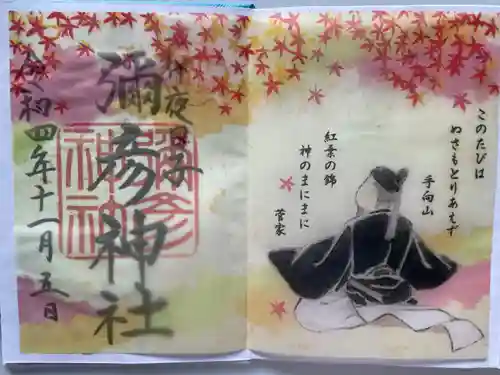 このたびは
ぬさもとりあえず
手向山
紅葉の錦
神のまにまに
菅家
伊夜日子
彌彦神社
彌彦
神社
令和四年十一月五日